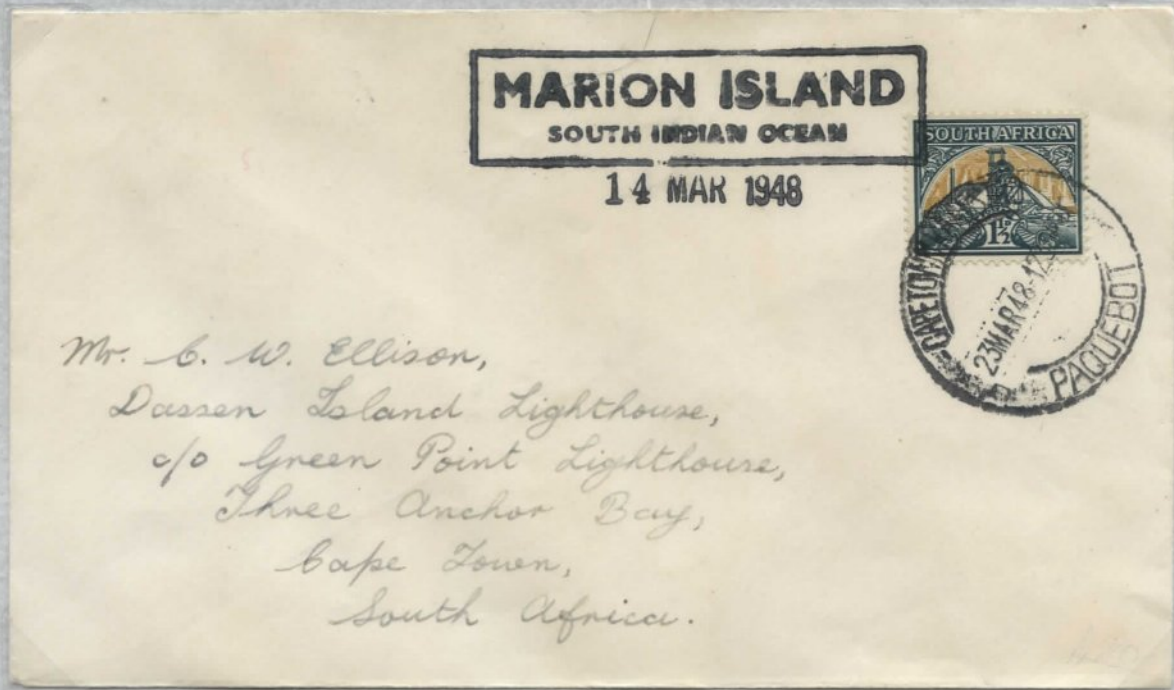 MARION ISLAND
SOUTH INDIAN OCEAN
14 MAR 1948
SOUTH AFRICA
1½D
23MAR48-12
PAQUEBOT
Mr. C. W. Ellison,
Dassen Island Lighthouse,
c/o Green Point Lighthouse,
Three Anchor Bay,
Cape Town,
South Africa.